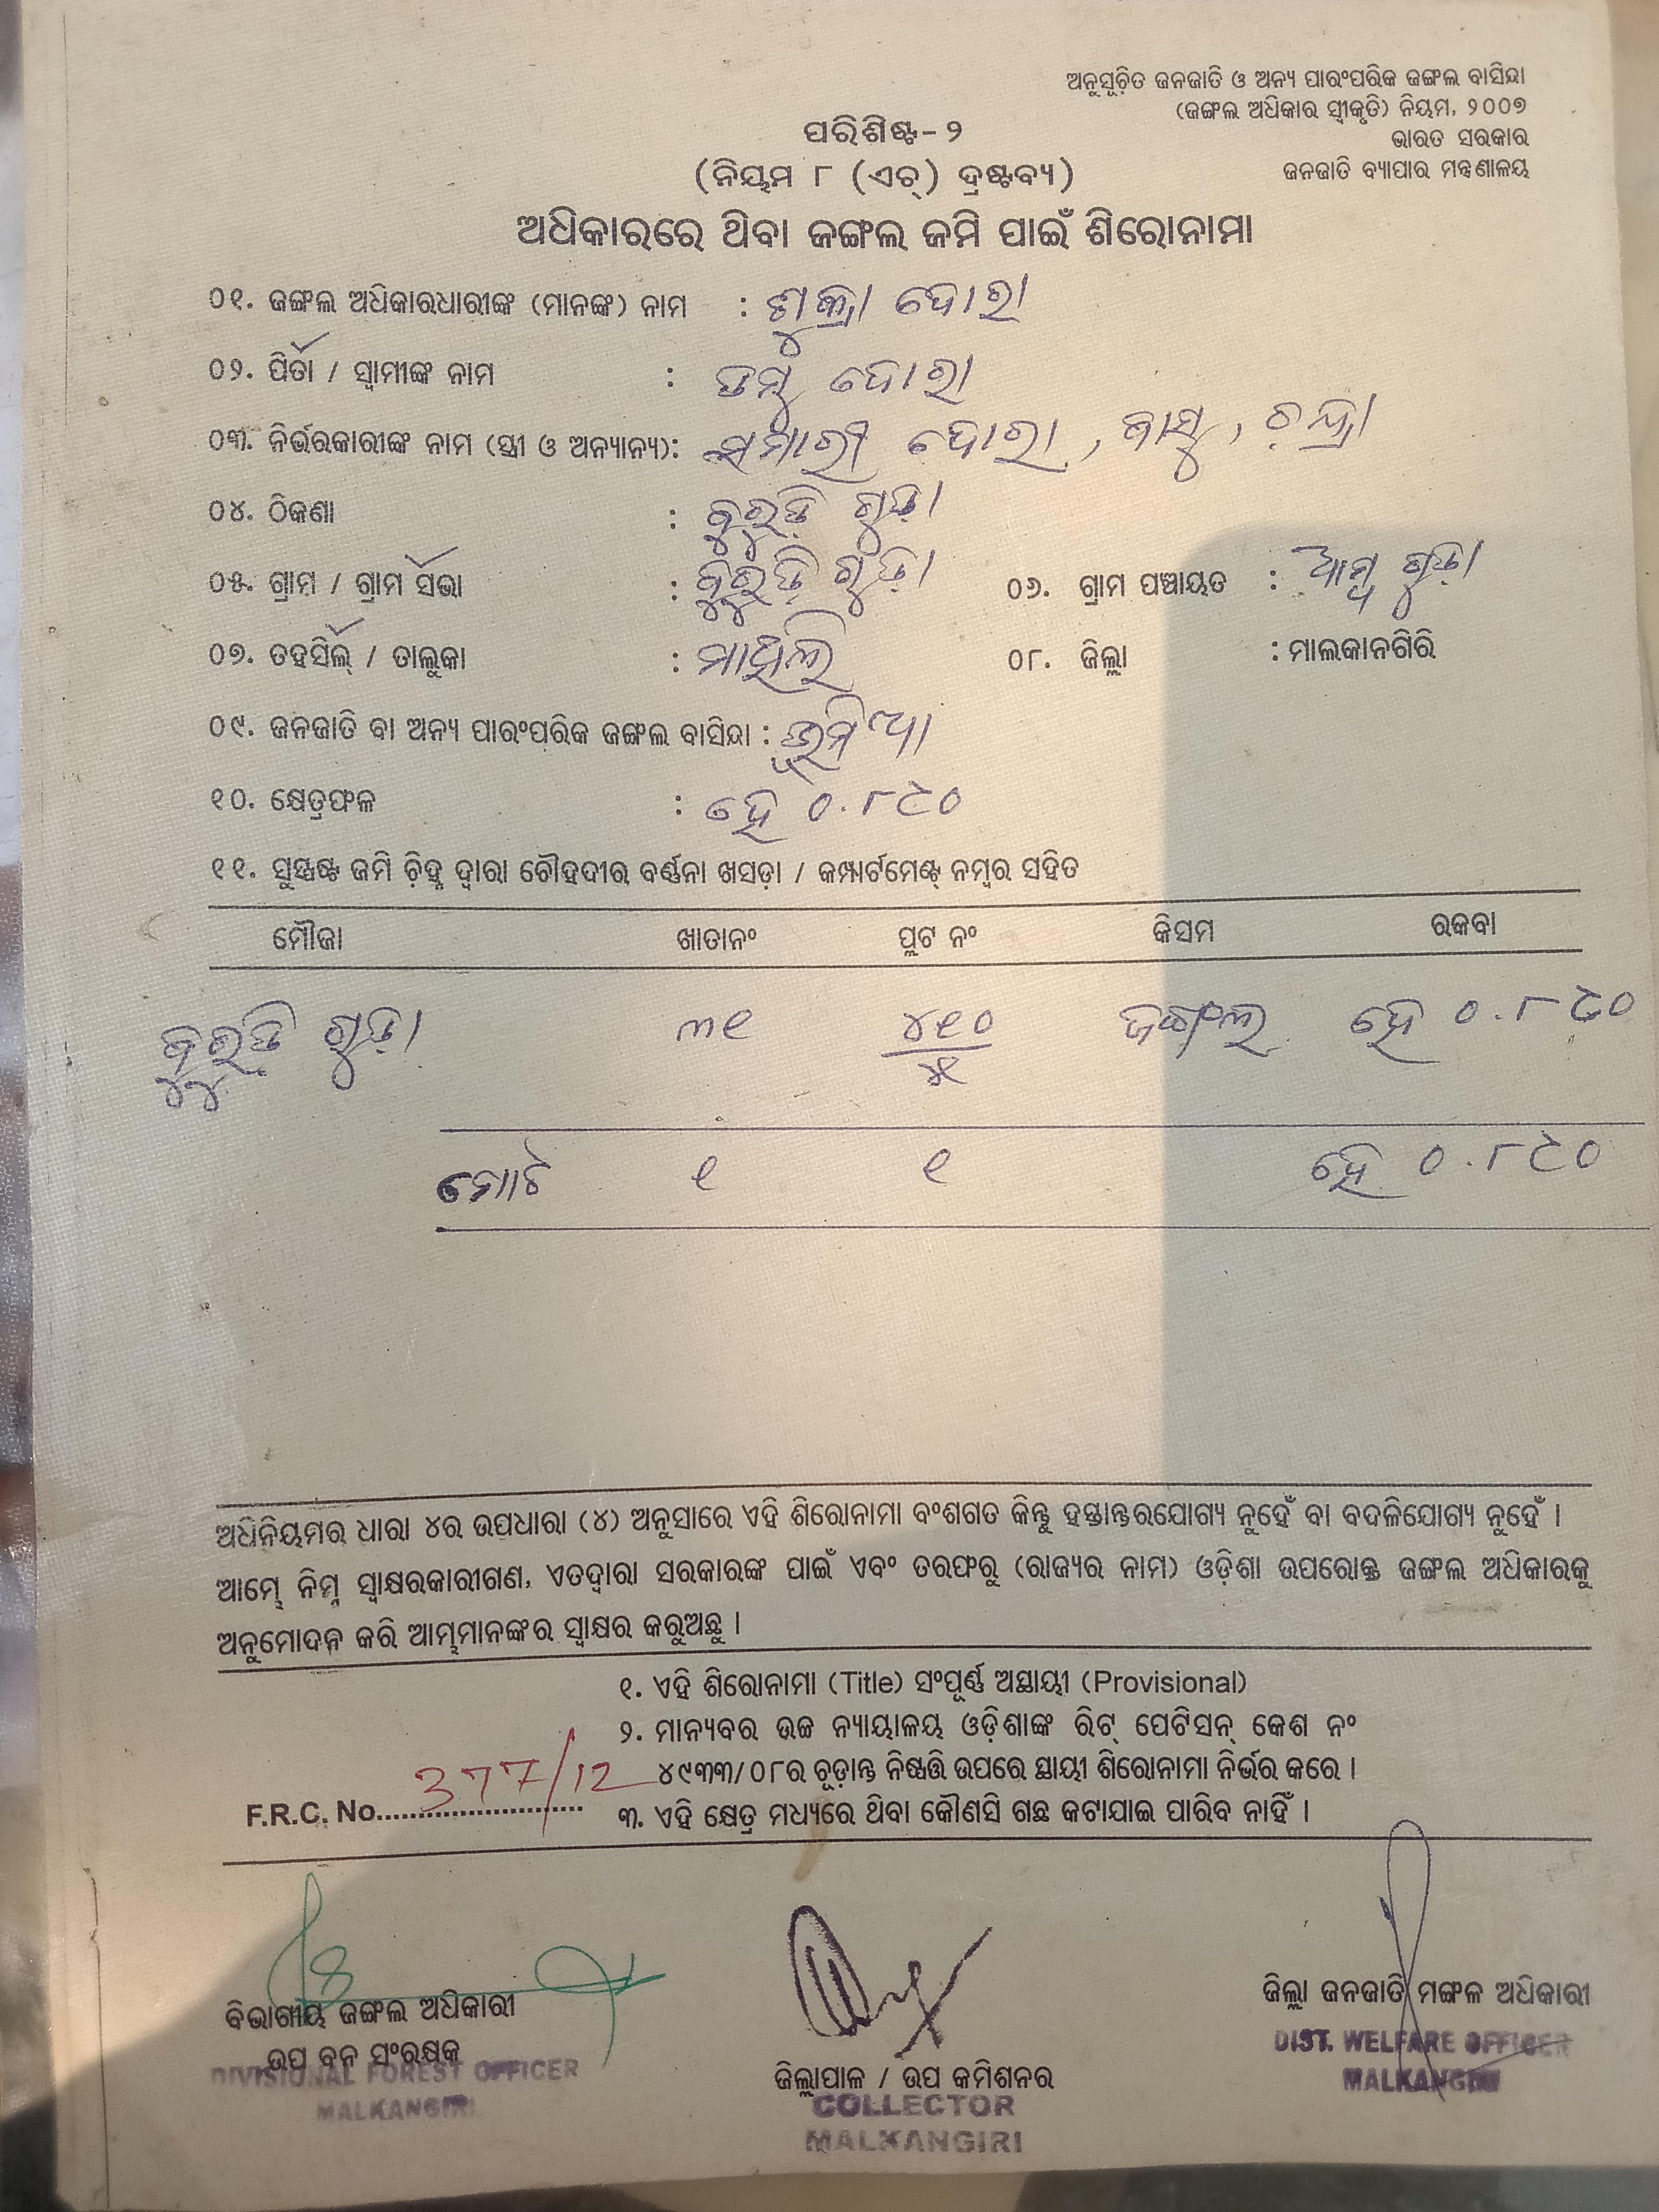 ଅନୁସୂଚିତ ଜନଜାତି ଓ ଅନ୍ୟ ପାରଂପରିକ ଜଙ୍ଗଲ ବାସିନ୍ଦା
(ଜଙ୍ଗଲ ଅଧିକାର ସ୍ୱୀକୃତି) ନିୟମ, ୨୦୦୭
ଭାରତ ସରକାର
ଜନଜାତି ବ୍ୟାପାର ମନ୍ତ୍ରଣାଳୟ
ପରିଶିଷ୍ଟ-୨
(ନିୟମ ୮ (ଏଚ୍) ଦ୍ରଷ୍ଟବ୍ୟ)
ଅଧିକାରରେ ଥିବା ଜଙ୍ଗଲ ଜମି ପାଇଁ ଶିରୋନାମା
୦୧. ଜଙ୍ଗଲ ଅଧିକାରଧାରୀଙ୍କ (ମାନଙ୍କ) ନାମ : ଶୁକ୍ରା ଦୋରା
୦୨. ପିତା / ସ୍ୱାମୀଙ୍କ ନାମ : ଡମ୍ବୁ ଦୋରା
୦୩. ନିର୍ଭରକାରୀଙ୍କ ନାମ (ସ୍ତ୍ରୀ ଓ ଅନ୍ୟାନ୍ୟ): ସମାରୀ ଦୋରା, ବାସୁ, ଚନ୍ଦ୍ରା
୦୪. ଠିକଣା : ବୁରୁଡ଼ି ଗୁଡ଼ା
୦୫. ଗ୍ରାମ / ଗ୍ରାମ ସଭା : ବୁରୁଡ଼ି ଗୁଡ଼ା ୦୬. ଗ୍ରାମ ପଞ୍ଚାୟତ : ଆମ୍ବ ଗୁଡ଼ା
୦୭. ତହସିଲ୍ / ତାଲୁକା : ମାଥିଲି ୦୮. ଜିଲ୍ଲା : ମାଲକାନଗିରି
୦୯. ଜନଜାତି ବା ଅନ୍ୟ ପାରଂପରିକ ଜଙ୍ଗଲ ବାସିନ୍ଦା : ଭୂମିଆ
୧୦. କ୍ଷେତ୍ରଫଳ : ହେ ୦.୮୯୦
୧୧. ସୁସ୍ପଷ୍ଟ ଜମି ଚିହ୍ନ ଦ୍ୱାରା ଚୌହଦୀର ବର୍ଣ୍ଣନା ଖସଡ଼ା / କମ୍ପାର୍ଟମେଣ୍ଟ୍ ନମ୍ବର ସହିତ
ମୌଜା ଖାତାନଂ ପ୍ଲଟ ନଂ କିସମ ରକବା
ବୁରୁଡ଼ି ଗୁଡ଼ା ୩୧ ୪୧୦ ଜଙ୍ଗଲ ହେ ୦.୮୯୦
ମୋଟ ୧ ୧ ହେ ୦.୮୯୦
ଅଧିନିୟମର ଧାରା ୪ର ଉପଧାରା (୪) ଅନୁସାରେ ଏହି ଶିରୋନାମା ବଂଶଗତ କିନ୍ତୁ ହସ୍ତାନ୍ତରଯୋଗ୍ୟ ନୁହେଁ ବା ବଦଳିଯୋଗ୍ୟ ନୁହେଁ ।
ଆମ୍ଭେ ନିମ୍ନ ସ୍ୱାକ୍ଷରକାରୀଗଣ, ଏତଦ୍ୱାରା ସରକାରଙ୍କ ପାଇଁ ଏବଂ ତରଫରୁ (ରାଜ୍ୟର ନାମ) ଓଡ଼ିଶା ଉପରୋକ୍ତ ଜଙ୍ଗଲ ଅଧିକାରକୁ
ଅନୁମୋଦନ କରି ଆମ୍ଭମାନଙ୍କର ସ୍ୱାକ୍ଷର କରୁଅଛୁ ।
୧. ଏହି ଶିରୋନାମା (Title) ସଂପୂର୍ଣ୍ଣ ଅସ୍ଥାୟୀ (Provisional)
୨. ମାନ୍ୟବର ଉଚ୍ଚ ନ୍ୟାୟାଳୟ ଓଡ଼ିଶାଙ୍କ ରିଟ୍ ପେଟିସନ୍ କେଶ ନଂ
୪୯୩୩/୦୮ର ଚୂଡ଼ାନ୍ତ ନିଷ୍ପତ୍ତି ଉପରେ ସ୍ଥାୟୀ ଶିରୋନାମା ନିର୍ଭର କରେ ।
F.R.C. No. 377/12
୩. ଏହି କ୍ଷେତ୍ର ମଧ୍ୟରେ ଥିବା କୌଣସି ଗଛ କଟାଯାଇ ପାରିବ ନାହିଁ ।
ବିଭାଗୀୟ ଜଙ୍ଗଲ ଅଧିକାରୀ
ଉପ ବନ ସଂରକ୍ଷକ
DIVISIONAL FOREST OFFICER
MALKANGIRI
ଜିଲ୍ଲାପାଳ / ଉପ କମିଶନର
COLLECTOR
MALKANGIRI
ଜିଲ୍ଲା ଜନଜାତି ମଙ୍ଗଳ ଅଧିକାରୀ
DIST. WELFARE OFFICER
MALKANGIRI